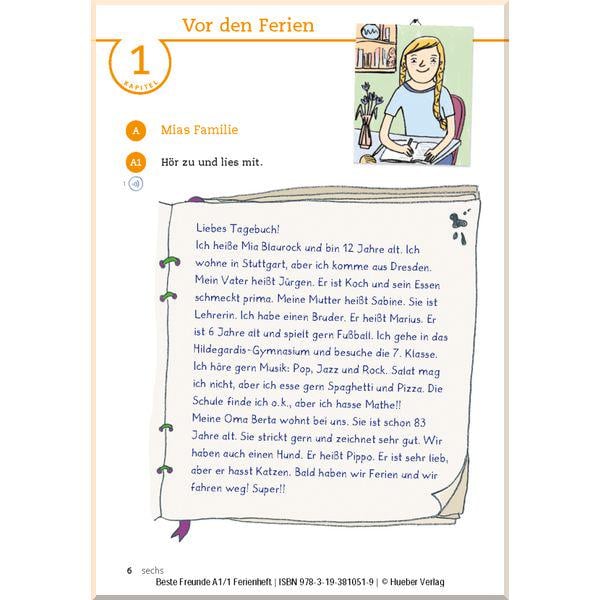 Vor den Ferien
1
KAPITEL
A Mias Familie
A1 Hör zu und lies mit.
1
Liebes Tagebuch!
Ich heiße Mia Blaurock und bin 12 Jahre alt. Ich
wohne in Stuttgart, aber ich komme aus Dresden.
Mein Vater heißt Jürgen. Er ist Koch und sein Essen
schmeckt prima. Meine Mutter heißt Sabine. Sie ist
Lehrerin. Ich habe einen Bruder. Er heißt Marius. Er
ist 6 Jahre alt und spielt gern Fußball. Ich gehe in das
Hildegardis-Gymnasium und besuche die 7. Klasse.
Ich höre gern Musik: Pop, Jazz und Rock. Salat mag
ich nicht, aber ich esse gern Spaghetti und Pizza. Die
Schule finde ich o.k., aber ich hasse Mathe!!
Meine Oma Berta wohnt bei uns. Sie ist schon 83
Jahre alt. Sie strickt gern und zeichnet sehr gut. Wir
haben auch einen Hund. Er heißt Pippo. Er ist sehr lieb,
aber er hasst Katzen. Bald haben wir Ferien und wir
fahren weg! Super!!
6 sechs
Beste Freunde A1/1 Ferienheft | ISBN 978-3-19-381051-9 | © Hueber Verlag